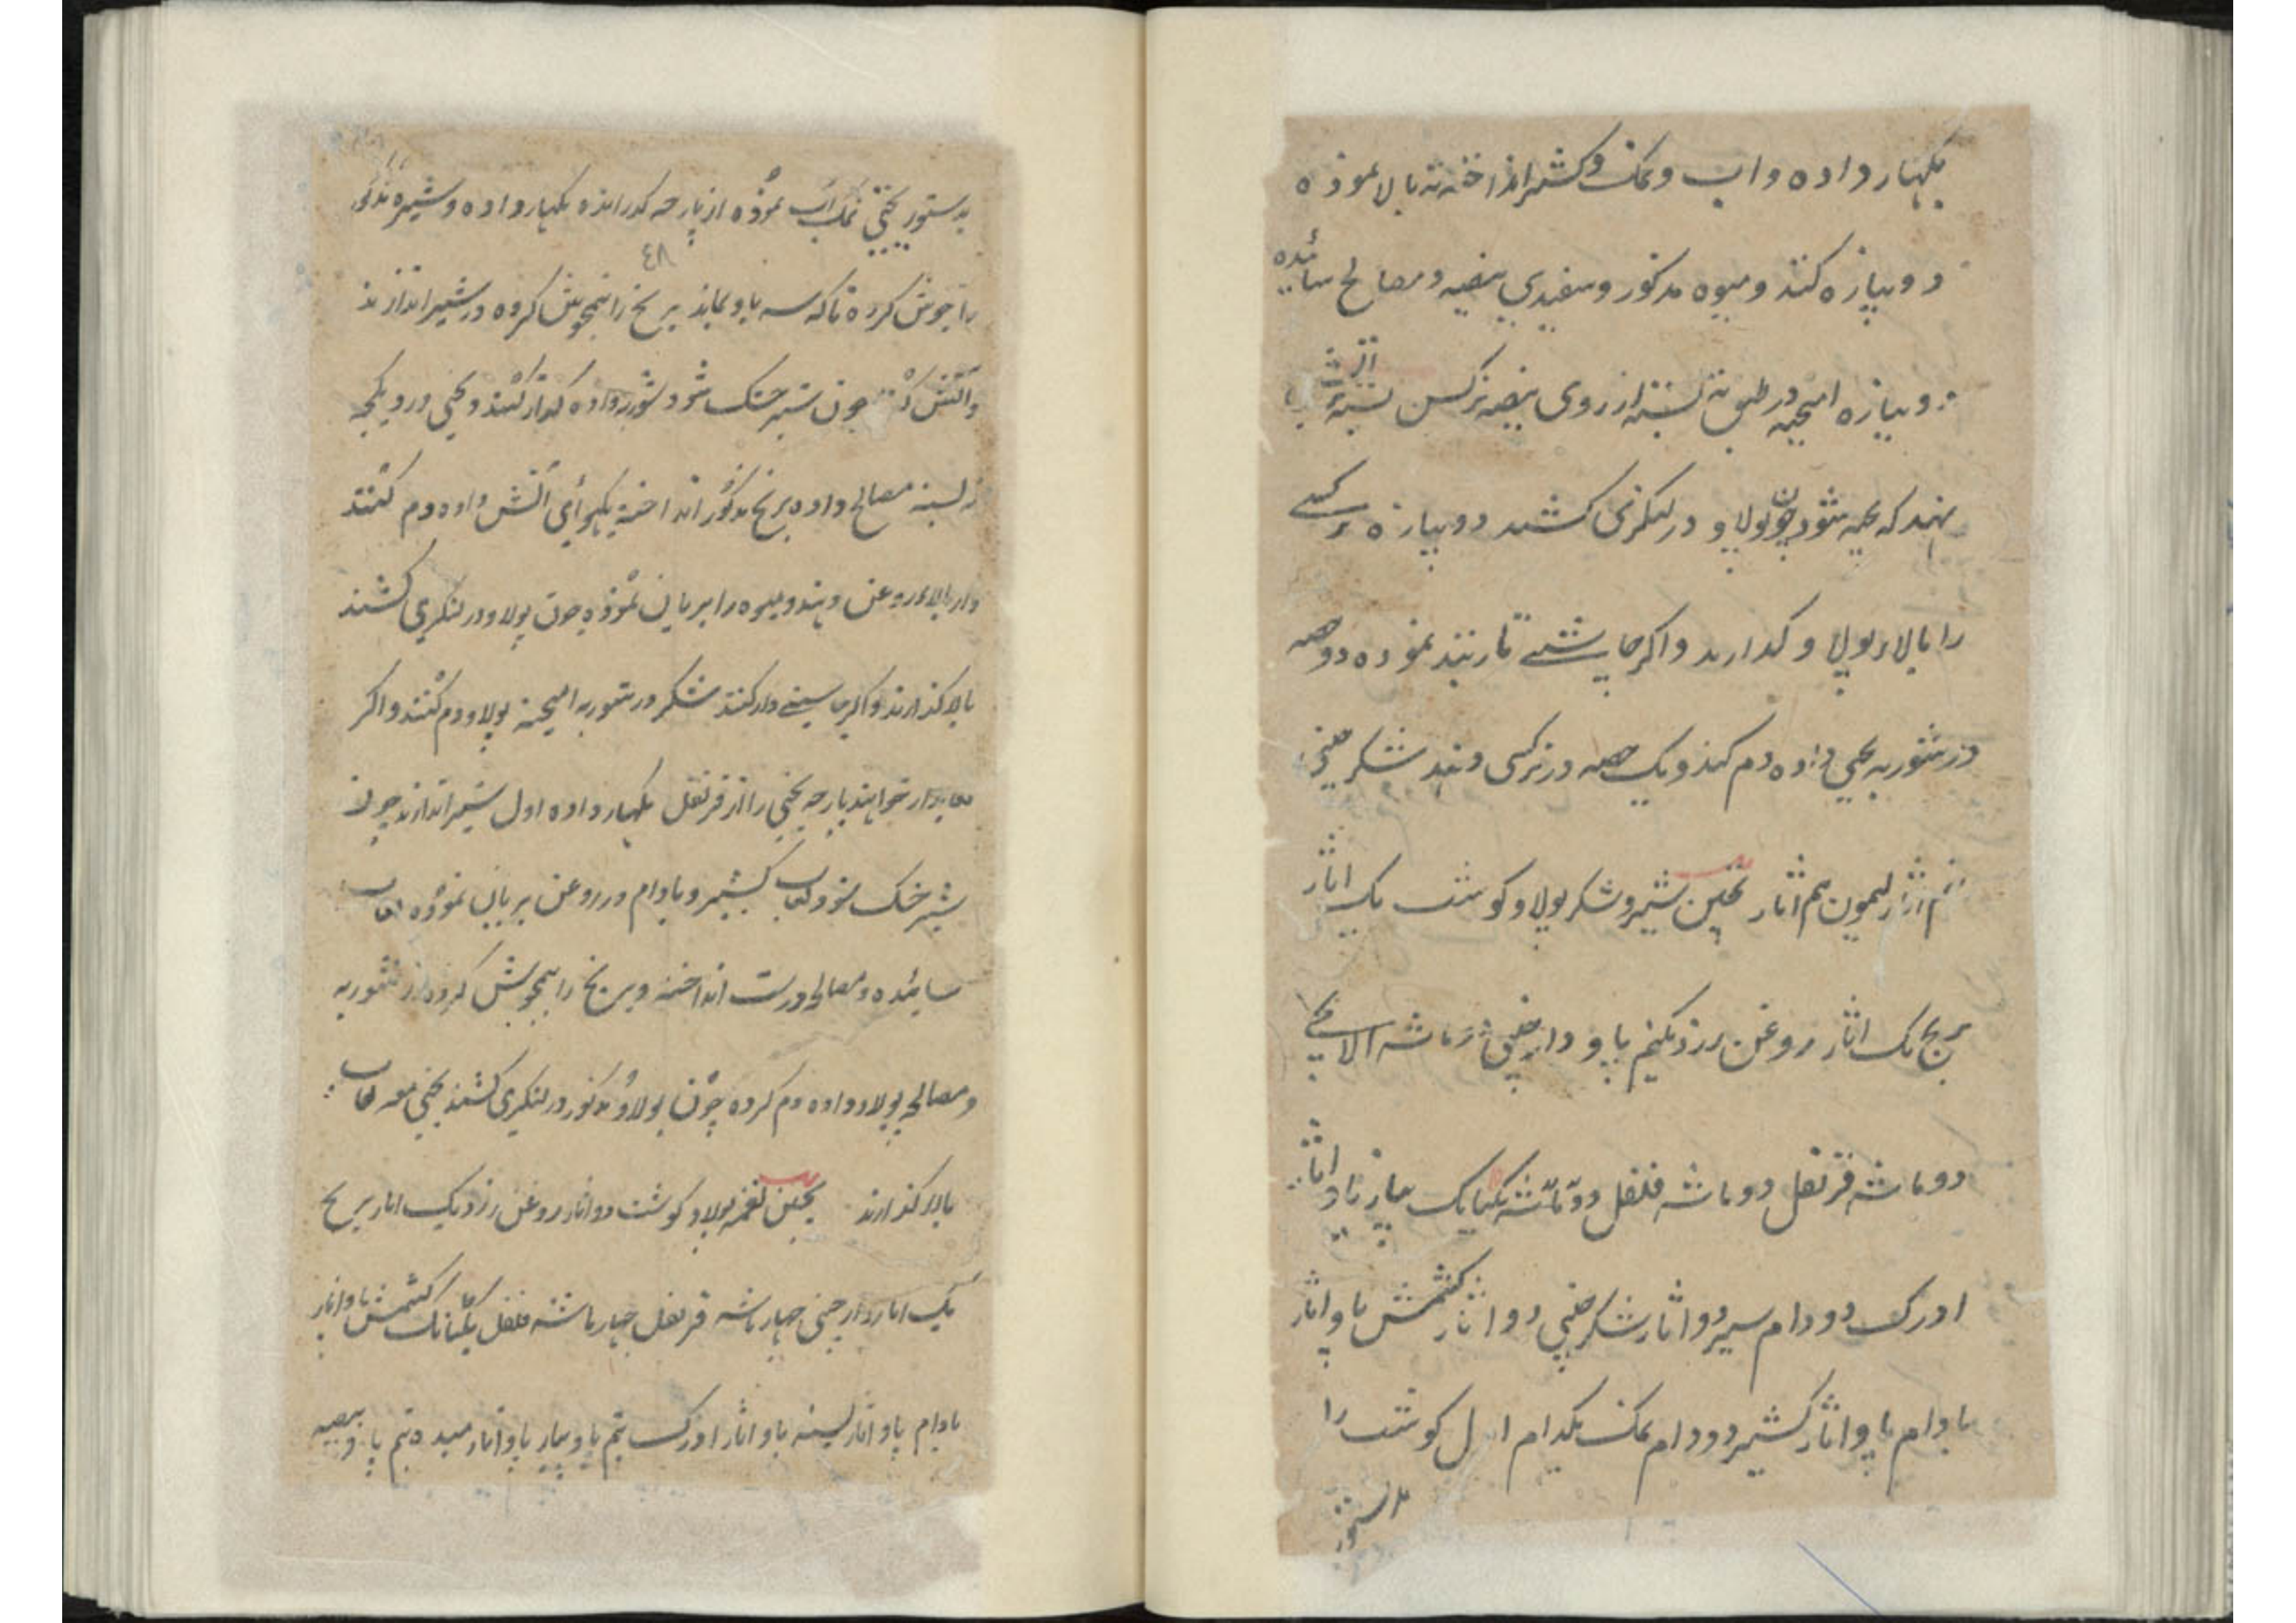 بکهار داده و اب و نمک و کشنیز انداخته ته بالا نموده
دوپیازه کنند و میوه مذکور و سفیدی بیضه و مصالح سائیده
دوپیازه در طبق بسته از روی بیضه نرکس بسته آتش
نهند که پخته شود چون پولاو در لنکری کشند دوپیازه نرکسی
را بالاء پولاو کذارند و اکر چاشنی دار نموده دو حصه
در شوربه یخنی داده دم کنند و یک حصه در نرکسی دهند شکر چینی
نیم اثار لیمون نیم اثار یخنین شیر و شکر پولاو کوشت یک اثار
برنج یک اثار روغن زرد یکنیم پاو دارچینی دو ماشه الاچی
دو ماشه قرنفل دو ماشه فلفل دو ماشه یکیانک پیاز پاو اثار
ادرک دو دام شیر دو اثار شکر چینی دو اثار کشمش پاو اثار
بادام پاو اثار کشنیز دو دام نمک یکدام اول کوشت را
بدستور
بدستور یخنی نمک اب نموده از پارچه کذرانده بکهار داده و شیر مذکور
٤٨
را جوش کرده تا که سه پاو بماند برنج را نیمجوش کرده در شیر اندازند
و آتش کنند چون شیر خشک شود شوربه داده کداز کنند و یخنی در دیکچه
ته بسته مصالح داده برنج مذکور انداخته یکهوائی آتش داده دم کنند
و از بالا روغن دهند و میوه را بریان نموده چون پولاو در لنکری کشند
بالا کذارند و اکر چاشنی دار کنند شکر در شوربه امیخته پولاو دم کنند و اکر
لعابدار خواهند پارچه یخنی را از قرنفل بکهار داده اول شیر اندازند چون
شیر خشک شود لعاب کشنیز و بادام در روغن بریان نموده لعاب
سائیده و مصالح درست انداخته و برنج را نیمجوش کرده از شوربه
و مصالح پولاو داده دم کرده چون پولاو مذکور در لنکری کشند یخنی معه لعاب
بالا کذارند یخنین نغمه پولاو کوشت دو اثار روغن زرد یک اثار برنج
یک اثار دارچینی چهار ماشه قرنفل چهار ماشه فلفل یکیانک کشمش پاو اثار
بادام پاو اثار پسته پاو اثار ادرک نیم پاو پیاز پاو اثار میده نیم پاو بیضه